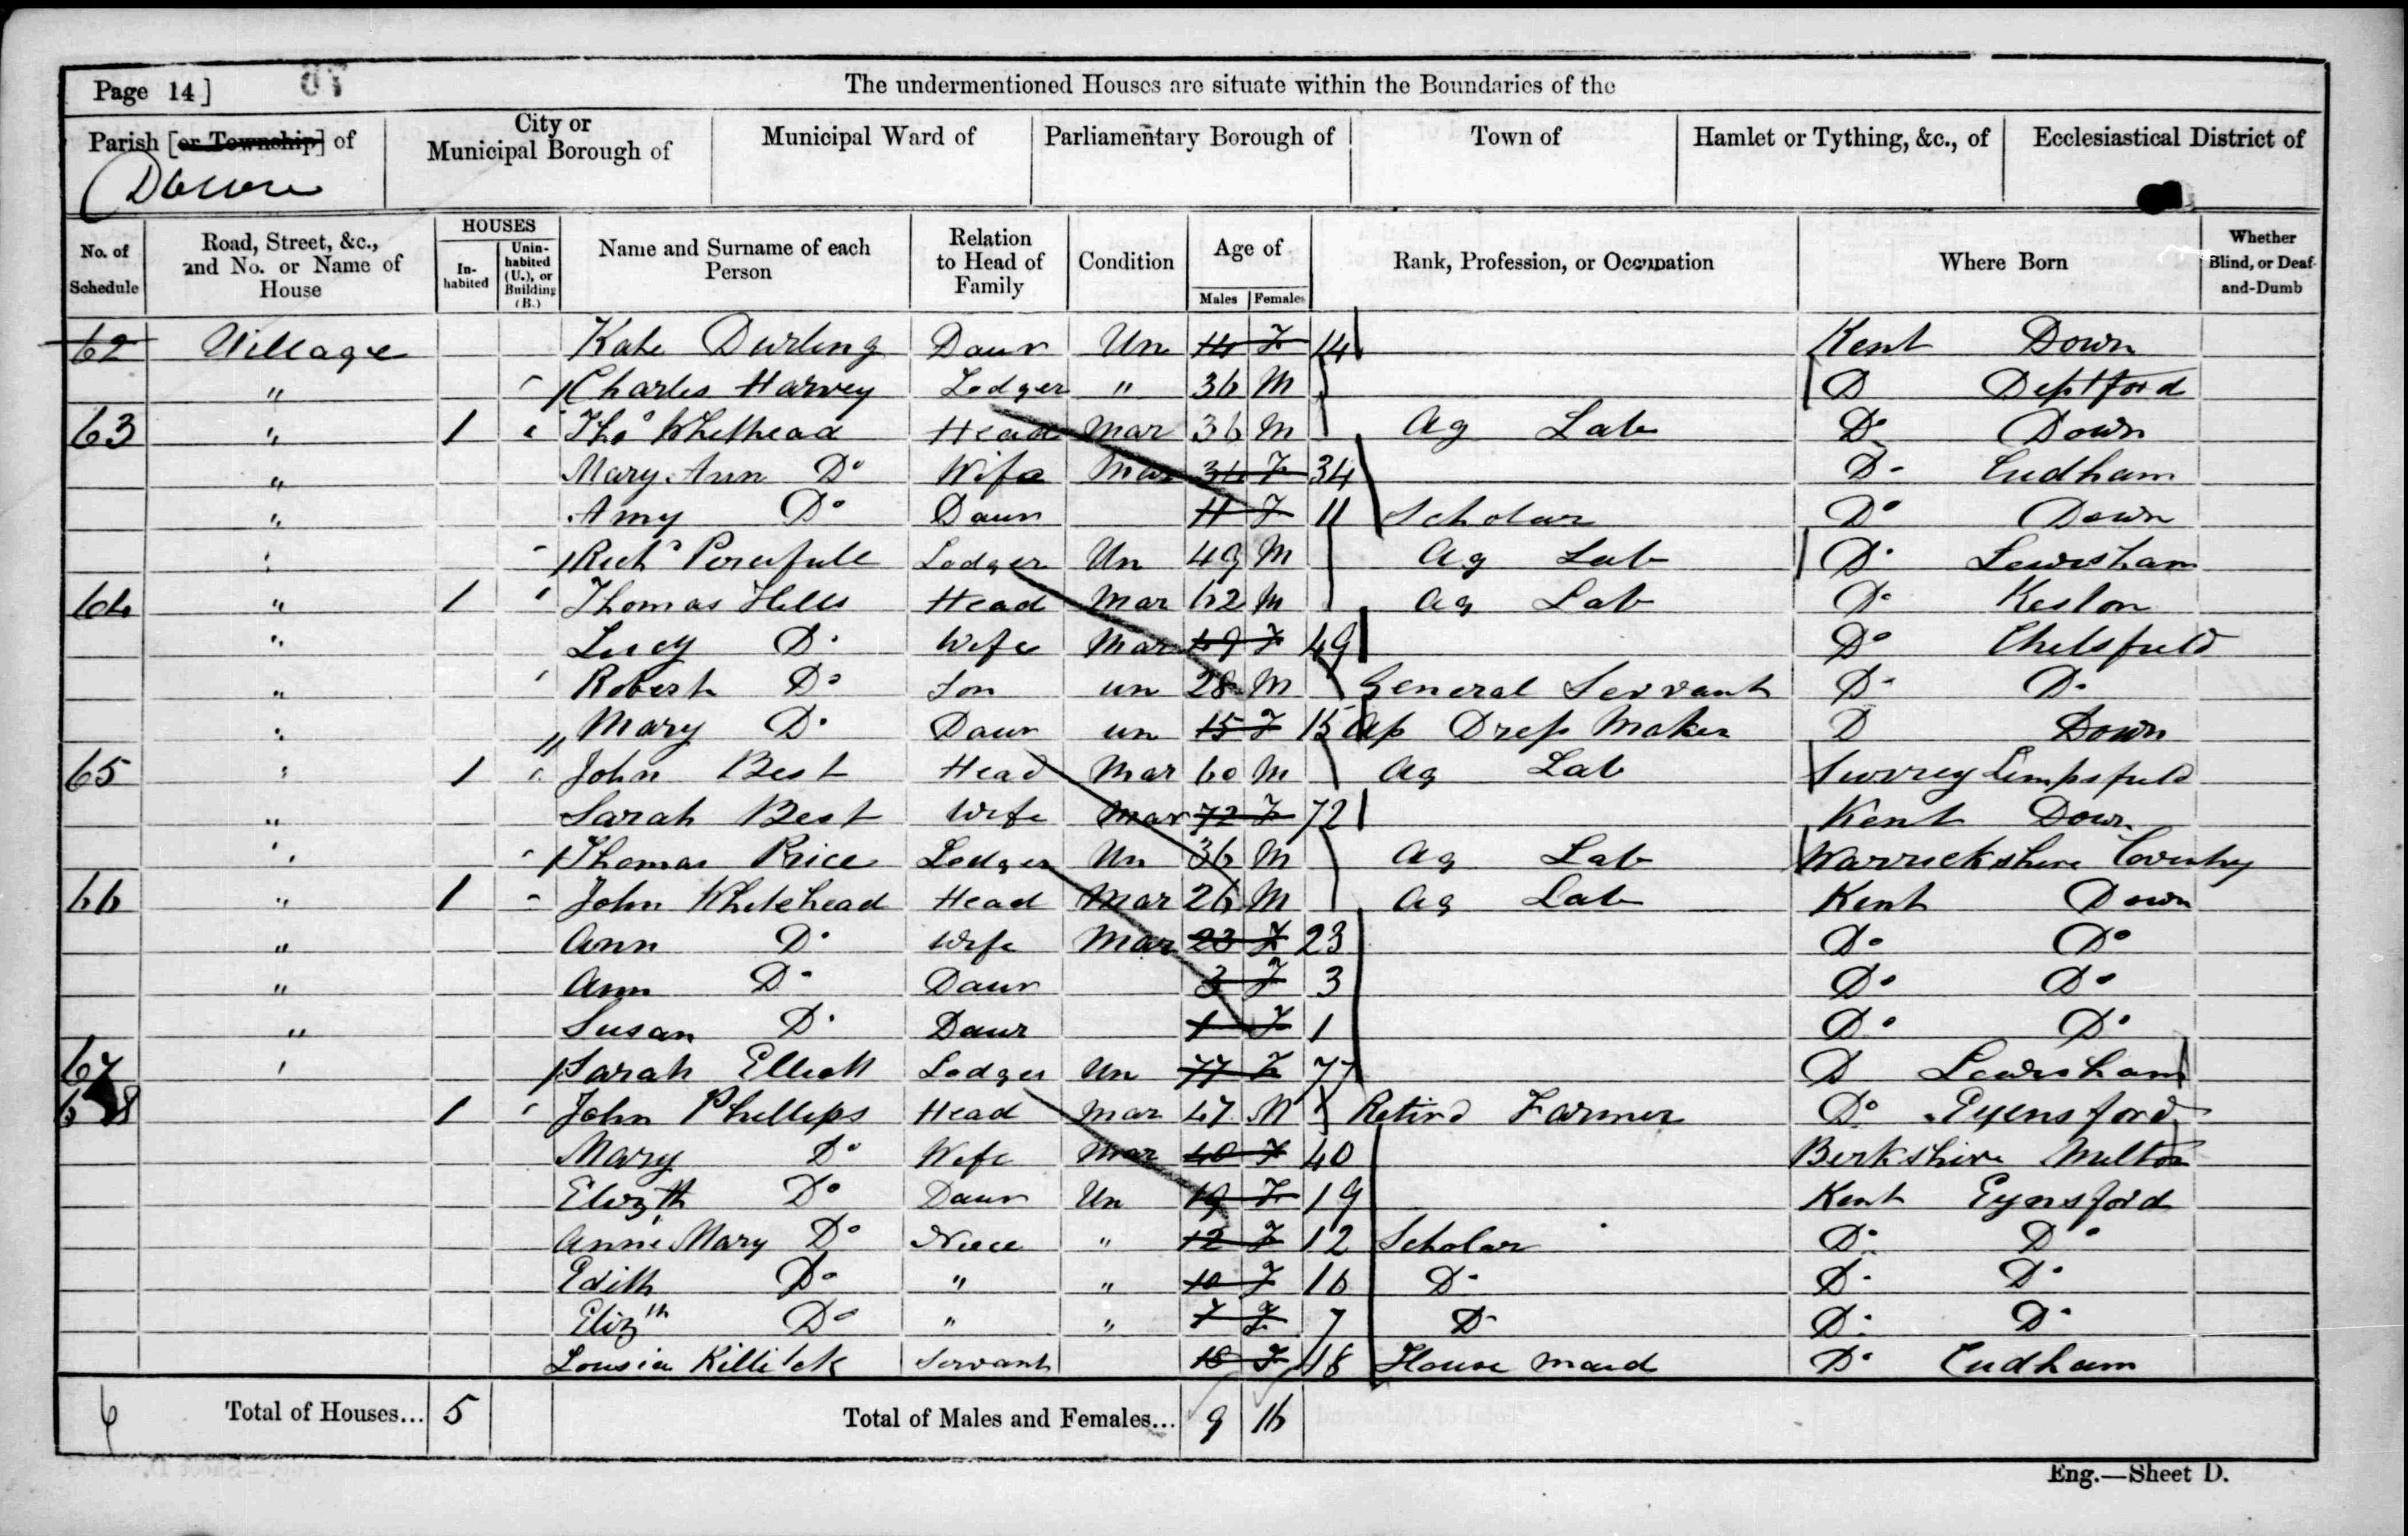 Page 14]
The undermentioned Houses are situate within the Boundaries of the
Parish [or Township] of City or Municipal Borough of Municipal Ward of Parliamentary Borough of Town of Hamlet or Tything, &c., of Ecclesiastical District of
Down
No. of Schedule Road, Street, &c., and No. or Name of House HOUSES Inhabited Uninhabited (U.), or Building (B.) Name and Surname of each Person Relation to Head of Family Condition Age of Males Females Rank, Profession, or Occupation Where Born Whether Blind, or Deaf-and-Dumb
62 Village Kate Durling Daur Un 14 F 14 Kent Down
" Charles Harvey Lodger " 36 M D Deptford
63 " 1 Thos Whithead Head Mar 36 M Ag Lab Do Down
" Mary Ann Do Wife Mar 34 F 34 Do Cudham
" Amy Do Daur 11 F 11 Scholar Do Down
" Lodger Un 49 M Ag Lab Do Lewisham
64 " 1 Thomas Hills Head Mar 62 M Ag Lab Do Keston
" Lucy Do Wife Mar 49 F 49 Do Chelsfield
" Robert Do Son un 28 M General Servant Do Do
" Mary Do Daur un 15 F 15 Ap Dress Maker D Down
65 " 1 John Best Head Mar 60 M Ag Lab Surrey Limpsfield
" Sarah Best Wife Mar 72 F 72 Kent Down
" Thomas Price Lodger Un 36 M Ag Lab Warrickshire Coventry
66 " 1 John Whitehead Head Mar 26 M Ag Lab Kent Down
" Ann Do Wife Mar 23 F 23 Do Do
" Ann Do Daur 3 F 3 Do Do
" Susan Do Daur 1 F 1 Do Do
67 " Sarah Elliott Lodger Un 77 F 77 D Lewisham
68 1 John Phillips Head Mar 47 M Retird Farmer Do Eyensford
Mary Do Wife Mar 40 F 40 Berkshire Milton
Elizth Do Daur Un 19 F 19 Kent Eynsford
Annie Mary Do Niece " 12 F 12 Scholar Do Do
Edith Do " " 10 F 10 Do Do Do
Elizth Do " " 7 F 7 Do Do Do
Lousia Killick Servant 18 F 18 House maid Do Cudham
6 Total of Houses... 5 Total of Males and Females... 9 16
Eng.—Sheet D.